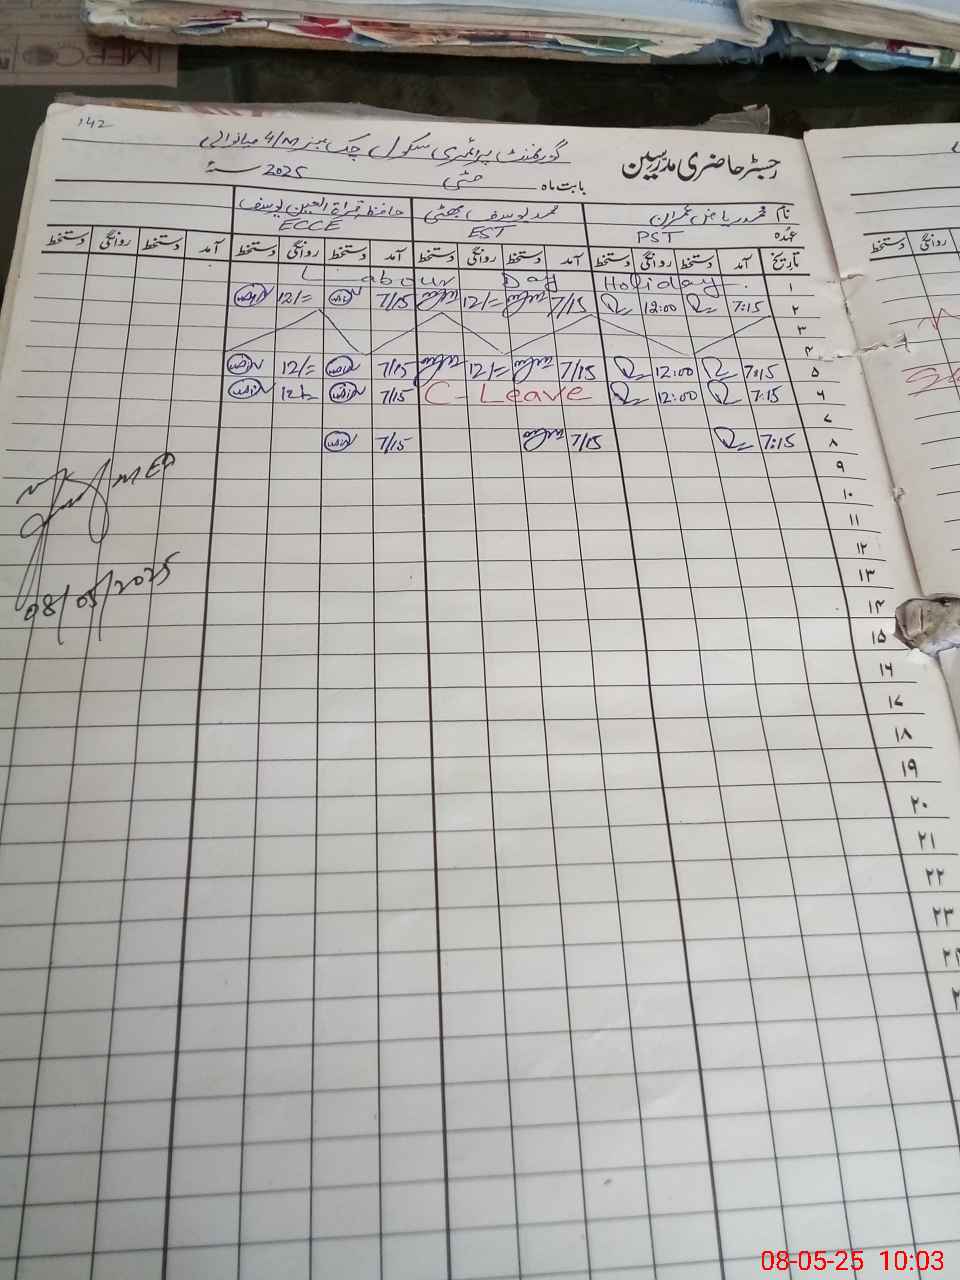 MEPCO
142
گورنمنٹ پرائمری سکول چک نمبر 4/M میانوالی
رجسٹر حاضری مدرسین
بابت ماہ مئی 2025 سنہ
نام محمد ریاض عمران محمد یوسف بھٹی حافظ قراۃ العین یوسف
عہدہ PST EST ECCE
تاریخ آمد دستخط روانگی دستخط آمد دستخط روانگی دستخط آمد دستخط روانگی دستخط آمد دستخط روانگی دستخط
روانگی دستخط
۱ Labour Day Holiday.
۲ 7:15 12:00 7/15 12/= 7/15 12/=
۳
۴
۵ 7:15 12:00 7/15 12/= 7/15 12/=
۶ 7:15 12:00 C-Leave 7/15 12/=
۷
۸ 7:15 7/15 7/15
۹
۱۰
۱۱
۱۲
۱۳
۱۴
۱۵
۱۶
۱۷
۱۸
۱۹
۲۰
۲۱
۲۲
۲۳
۲۴
MEA
08/05/2025
08-05-25 10:03